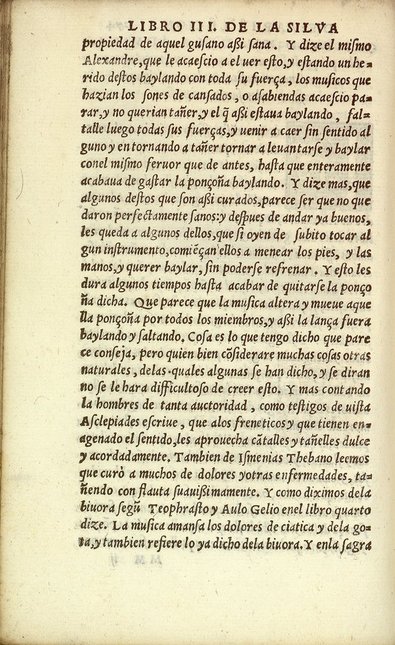 LIBRO III. DE LA SILVA
propiedad de aquel gusano aßi sana. Y dize el mismo
Alexandre, que le acaescio a el uer esto, y estando un he-
rido destos baylando con toda su fuerça, los musicos que
hazian los sones de cansados, o asabiendas acaescio pa-
rar, y no querian tañer, y el q̃ aßi estaua baylando, fal-
talle luego todas sus fuerças, y uenir a caer sin sentido al
guno y en tornando a tañer tornar a leuantarse y baylar
conel mismo feruor que de antes, hasta que enteramente
acabaua de gastar la ponçoña baylando. Y dize mas, que
algunos destos que son aßi curados, parece ser que no que
daron perfectamente sanos: y despues de andar ya buenos,
les queda a algunos dellos, que si oyen de subito tocar al
gun instrumento, comiẽçan ellos a menear los pies, y las
manos, y querer baylar, sin poderse refrenar. Y esto les
dura algunos tiempos hasta acabar de quitarse la ponço
ña dicha. Que parece que la musica altera y mueue aque
lla ponçoña por todos los miembros, y aßi la lança fuera
baylando y saltando. Cosa es lo que tengo dicho que pare
ce conseja, pero quien bien cõsiderare muchas cosas otras
naturales, delas quales algunas se han dicho, y se diran
no se le hara difficultoso de creer esto. Y mas contando
la hombres de tanta auctoridad, como testigos de uista
Asclepiades escriue, que alos freneticos y que tienen en-
agenado el sentido, les aprouecha cãtalles y tañelles dulce
y acordadamente. Tambien de Ismenias Thebano leemos
que curò a muchos de dolores yotras enfermedades, ta-
ñendo con flauta suauißimamente. Y como diximos dela
biuora segũ Teophrasto y Aulo Gelio enel libro quarto
dize. La musica amansa los dolores de ciatica y dela go-
ta, y tambien refiere lo ya dicho dela biuora. Y enla sagra